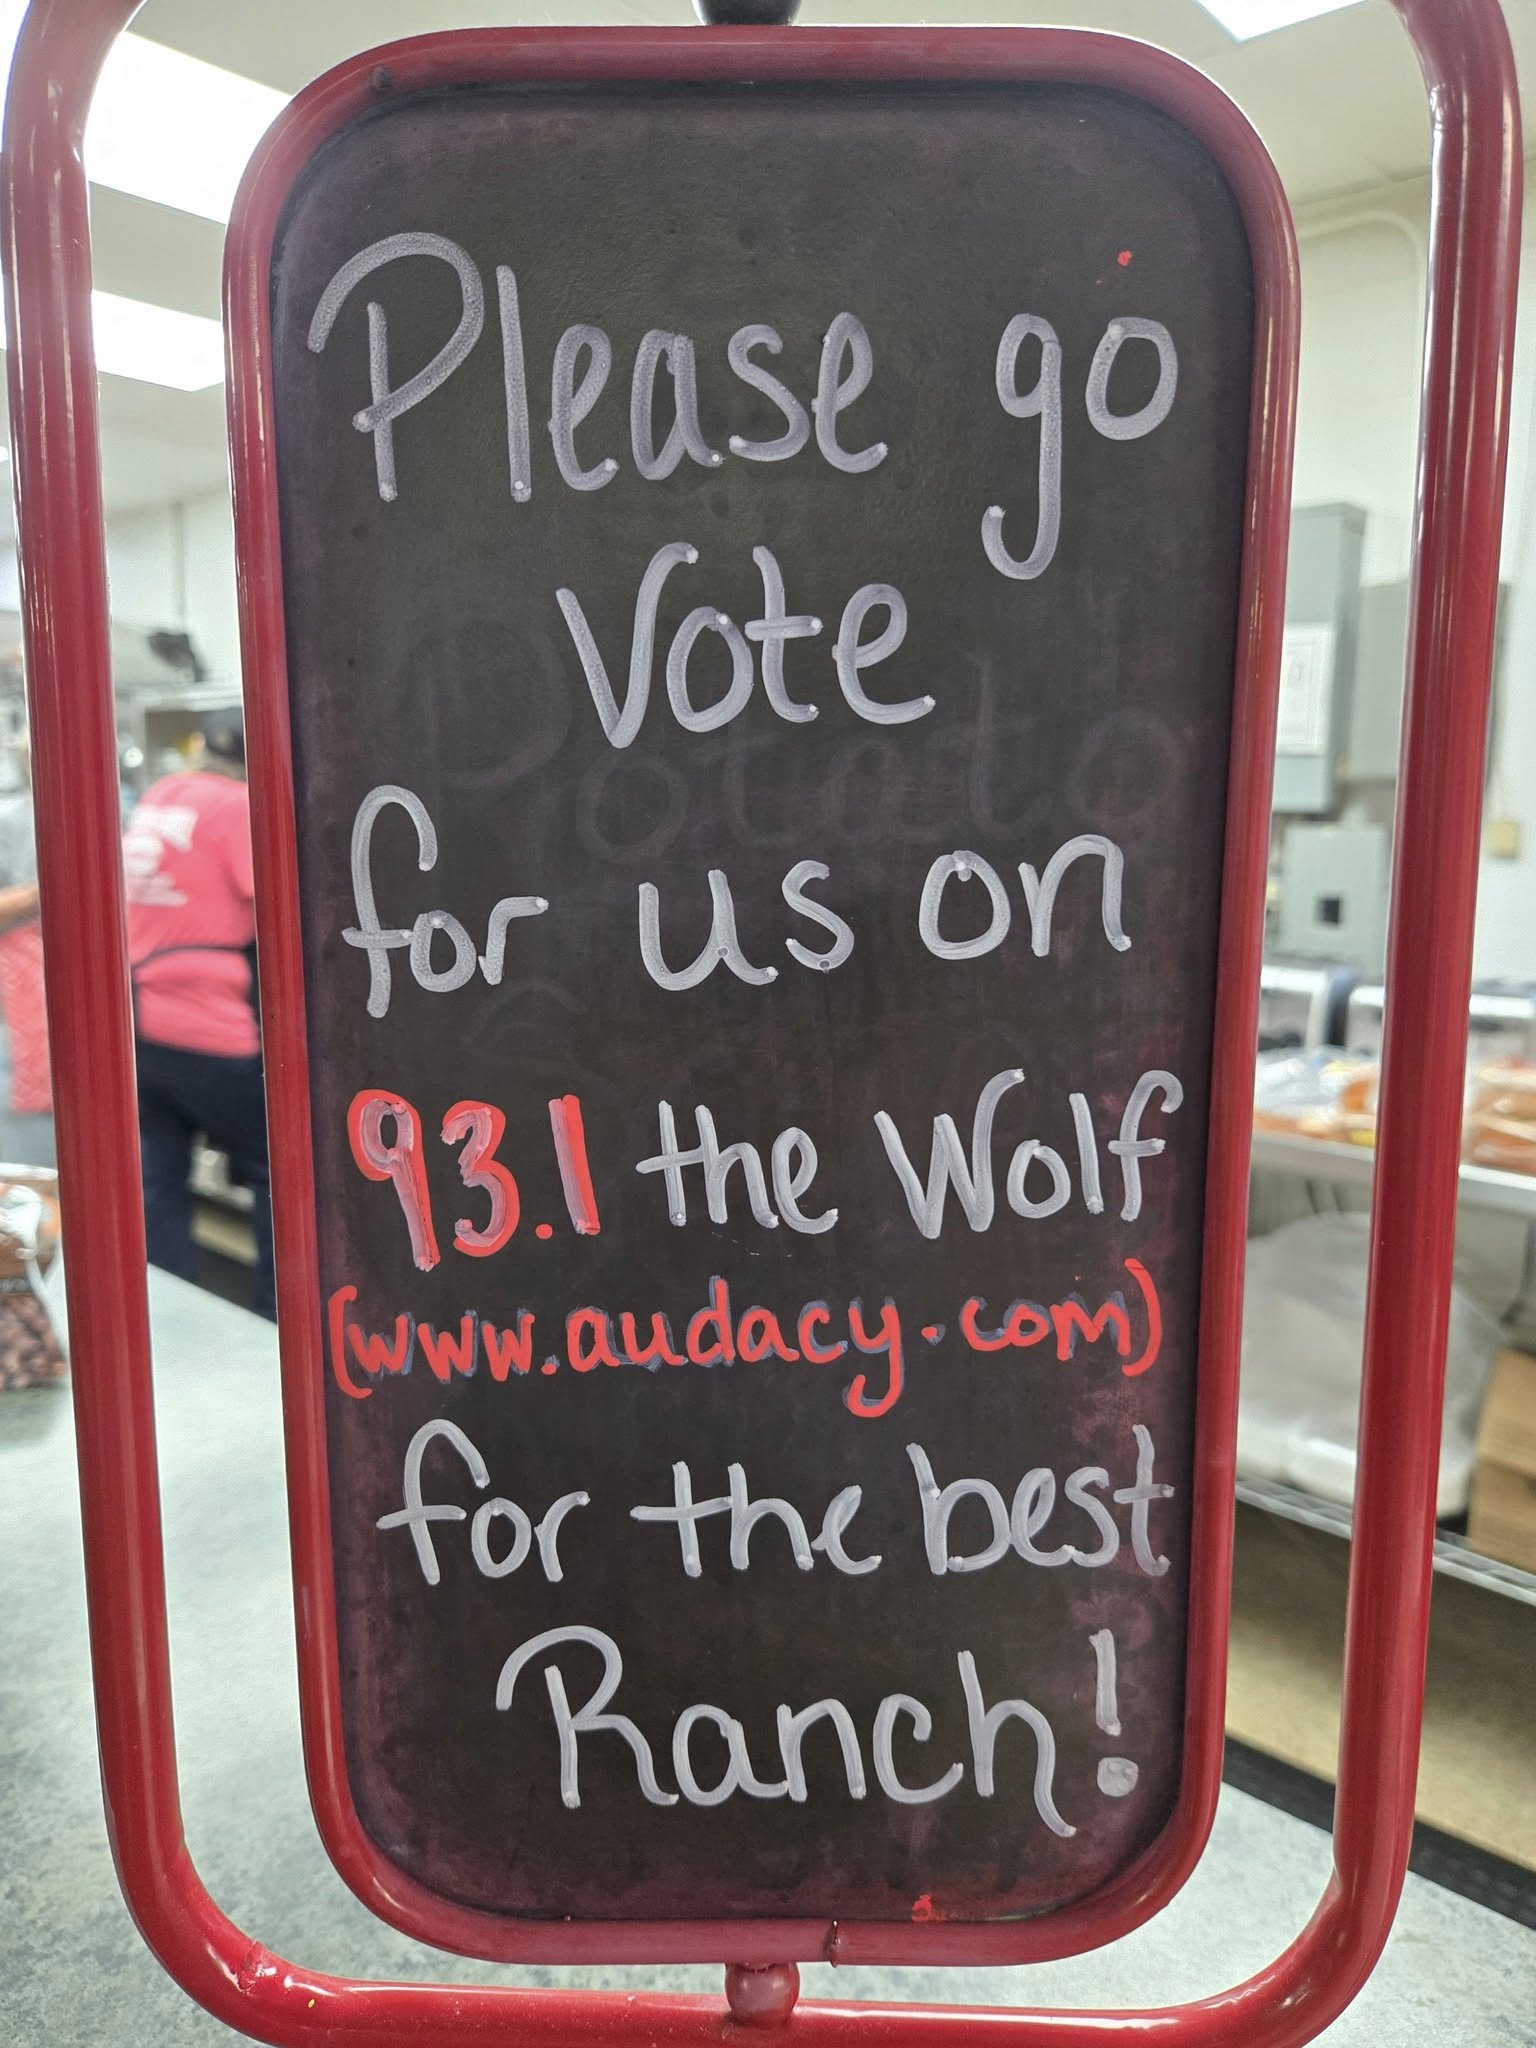 Please go
Vote
Potato
for us on
93.1 the Wolf
(www.audacy.com)
for the best
Ranch!